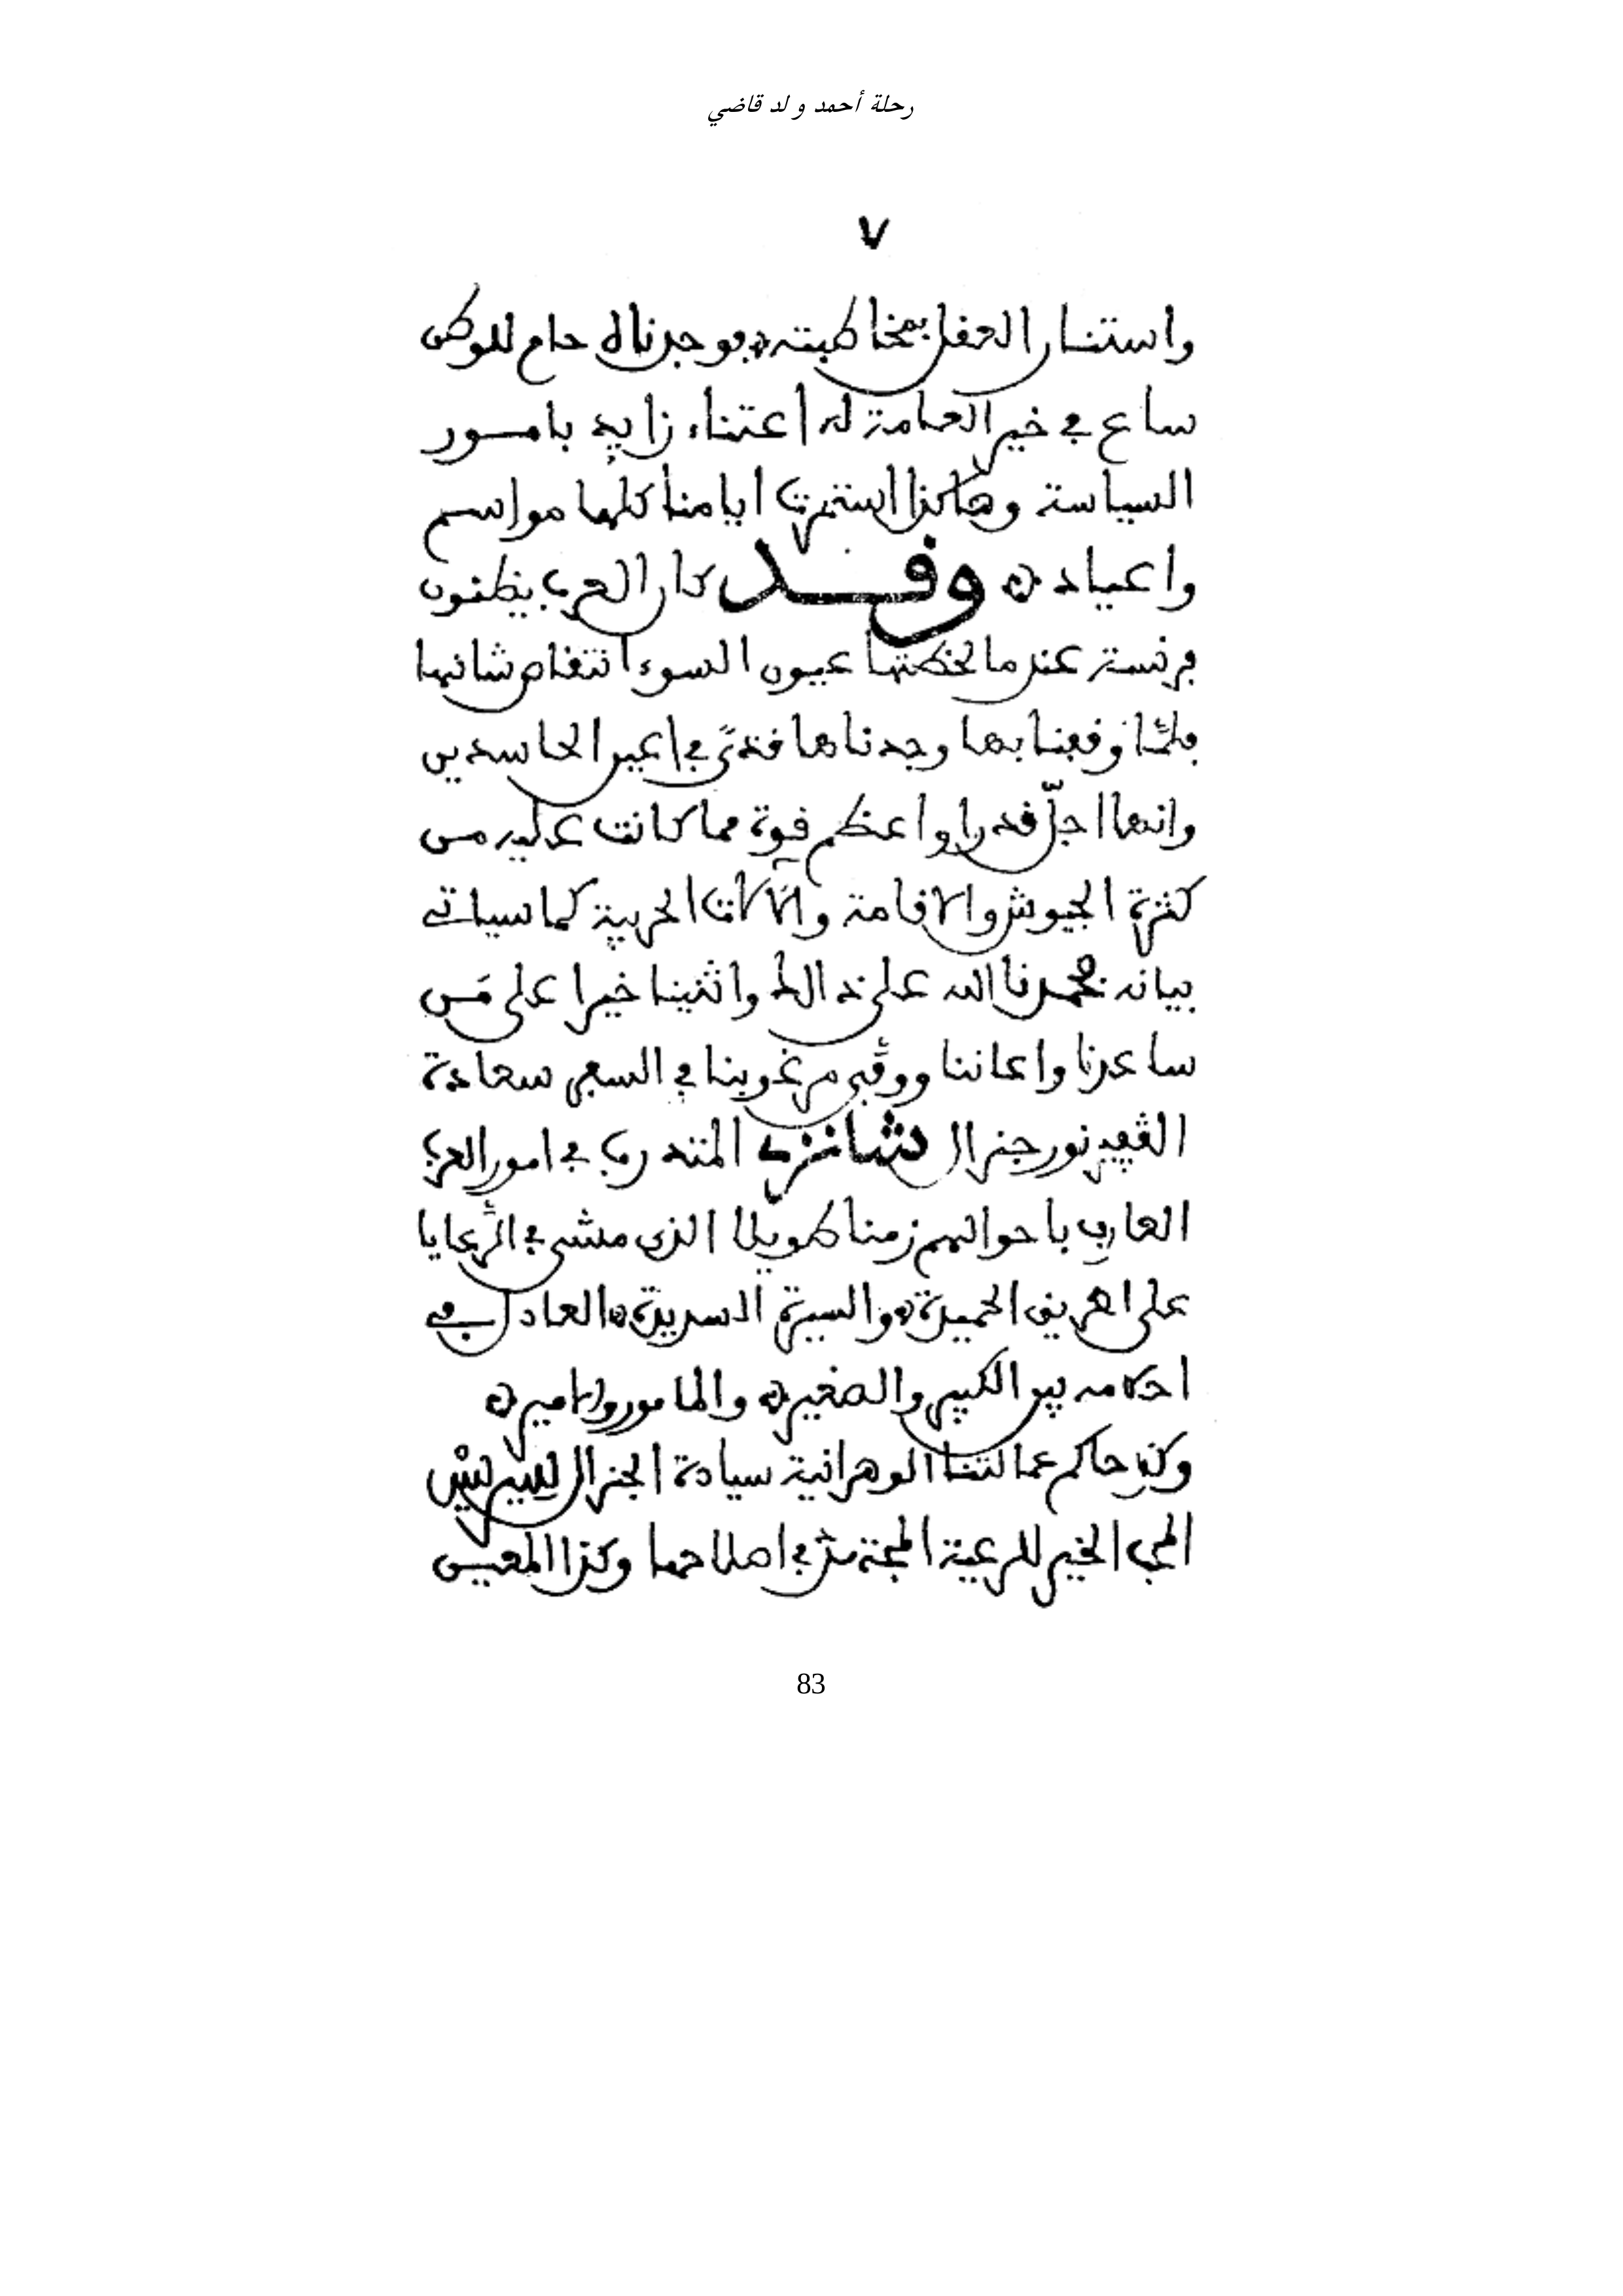 رحلة أحمد ولد قاضي
٧
واستنار العقل بمخاطبته فوجدناه حام للوطن
ساع في خير العامة له اعتناء زايد بامور
السياسة وهاكذا استمرت ايامنا كلها مواسم
واعياد وقد كان العرب يظنون
فرنسة عندما لحظتها عيون السوء انتقاص شانها
فلمّا وقفنا بها وجدناها قذىً في اعين الحاسدين
وانها اجلّ قدرا واعظم قوة مما كانت عليه من
كثرة الجيوش والاقامة والآلات الحربية كما سياتي
بيانه فحمدنا الله على ذالك واثنينا خيرا على مَن
ساعدنا واعاننا ووفّى مرغوبنا في السفر سعادة
الڤبيرنور جنرال شانزي المتدرب في امور العرب
العارف باحوالهم زمنا طويلا الذي مشى في الرّعايا
على الطريق الحميدة والسيرة السديدة العادل في
احكامه بين الكبير والصغير والمامور والامير
وكذا حاكم عمالتنا الوهرانية سيادة الجنرال
المحب الخير للرعية المجتهد في اصلاحها وكذا المعين
83